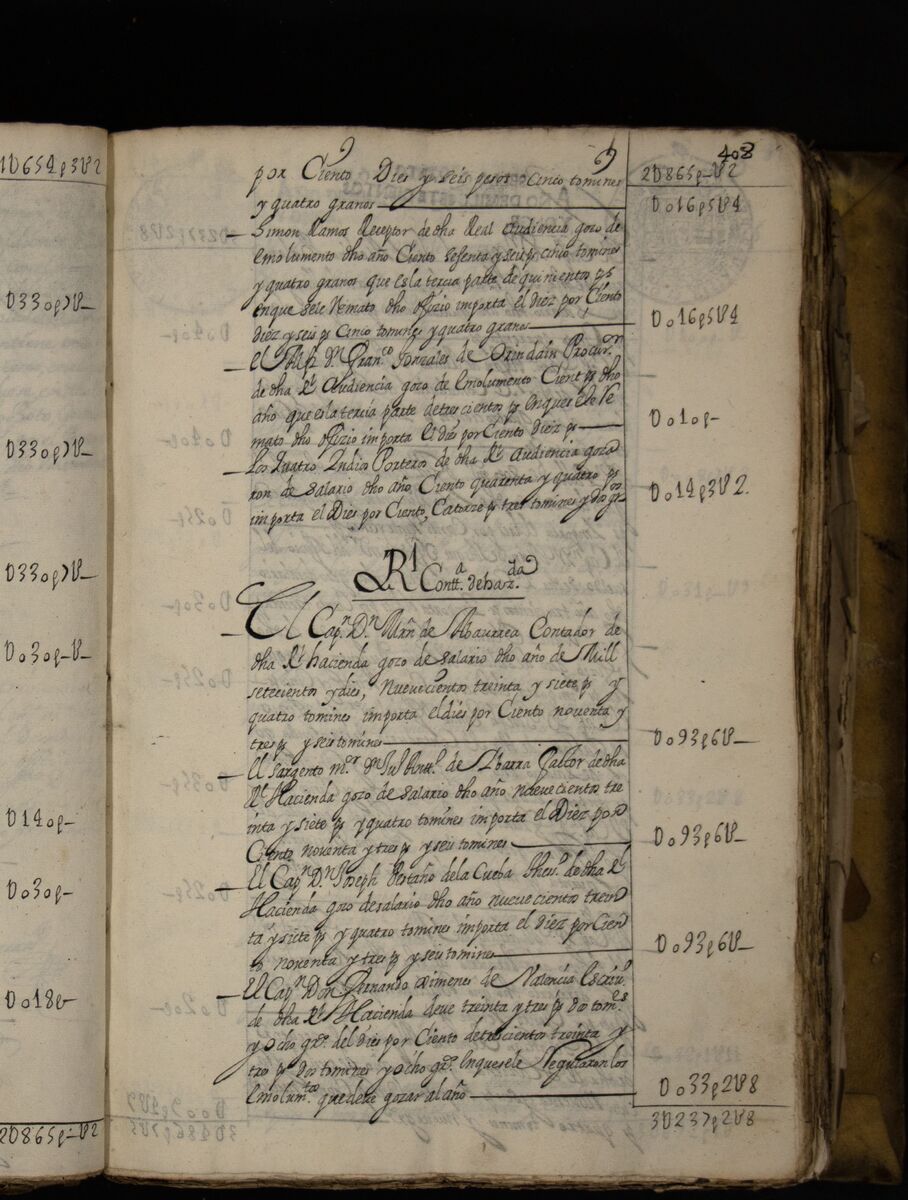 1U654p3U2
U33op)U—
U33op)U—
U33op)U—
Uo3op-U—
U14op-
Uo3op-
Uo18p-
2U865p-U2
408
2U865p-U2
por Ciento Dies y seis pesos Cinco tomines
y quatro granos
Uo16p5U4
Simon Ramos Receptor de dha Real Audiencia gozo de
emolumento dho año Ciento sesenta y seis ps cinco tomines
y quatro granos que es la tercia parte de quinientos ps
en que se le Remato dho ofizio importa el diez por Ciento
diez y seis ps Cinco tomines y quatro granos
Uo16p5U4
el Alfz Dn Franco Gonzales de Orundain Procuror
de dha Rl Audiencia gozo de emolumento Cient ps dho
año que es la tercia parte de trescientos ps en que se le Re
mato dho ofizio importa el dies por Ciento diez ps
Uo1op-
Los quatro Indios Porteros de dha Rl Audiencia goza
ron de salario dho año Ciento quarenta y quatro ps
importa el Dies por Ciento, Catorze ps tres tomines y dos gros
Uo14p3U2.
Rl Contta de hazda
El Capn Dn Mrn de Abaurrea Contador de
dha Rl hacienda gozo de salario dho año de Mill
setecientos y dies, Nuevecientos treinta y siete ps y
quatro tomines importa el dies por Ciento noventa y
tres ps y seis tomines
Uo93p6U—
El Sargento mor Dn Jul Antto de Ybarra Factor de dha
Rl Hacienda gozo de salario dho año nuevecientos tre
inta y siete ps y quatro tomines importa el Diez por
Ciento noventa y tres ps y seis tomines
Uo93p6U—
El Capn Dn Joseph Bestaño de la Cueba thesro de dha Rl
Hacienda gozo de salario dho año nuevecientos trein
ta y siete ps y quatro tomines importa el diez por Cien
to noventa y tres ps y seis tomines
Uo93p6U—
El Capn Don Fernando Ximenes de Valencia Escriuo
de dha Rl Hacienda deve treinta y tres ps dos toms
y ocho gros del dies por Ciento de trescientos treinta y
tres ps dos tomines y ocho gros en que se le Regularon los
emolumtos que deve gozar al año
Uo33p2U8
3U237p2U8